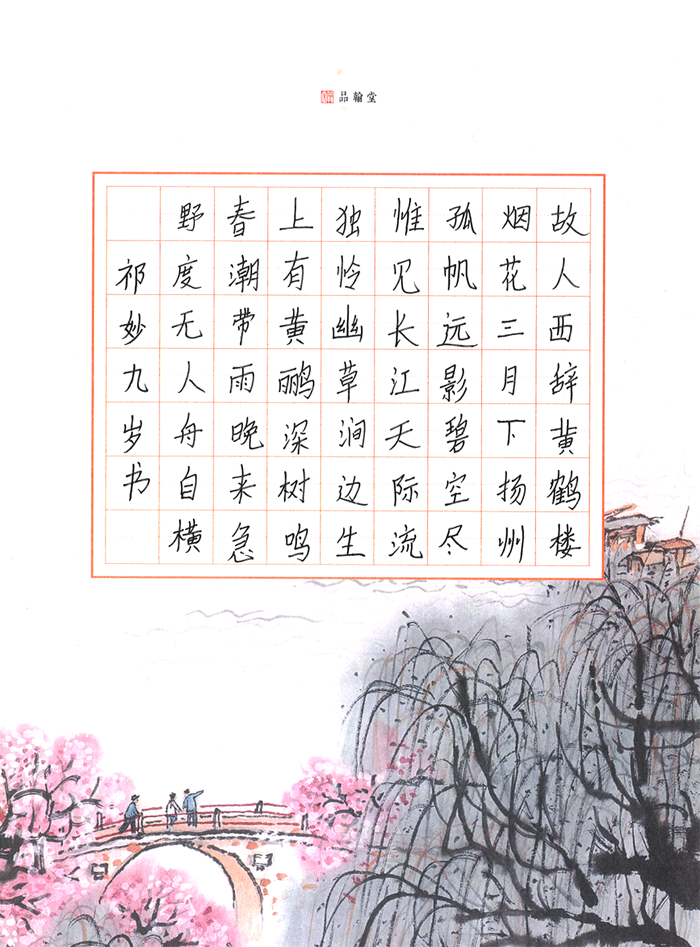 品翰堂
故人西辞黄鹤楼
烟花三月下扬州
孤帆远影碧空尽
惟见长江天际流
独怜幽草涧边生
上有黄鹂深树鸣
春潮带雨晚来急
野度无人舟自横
祁妙九岁书